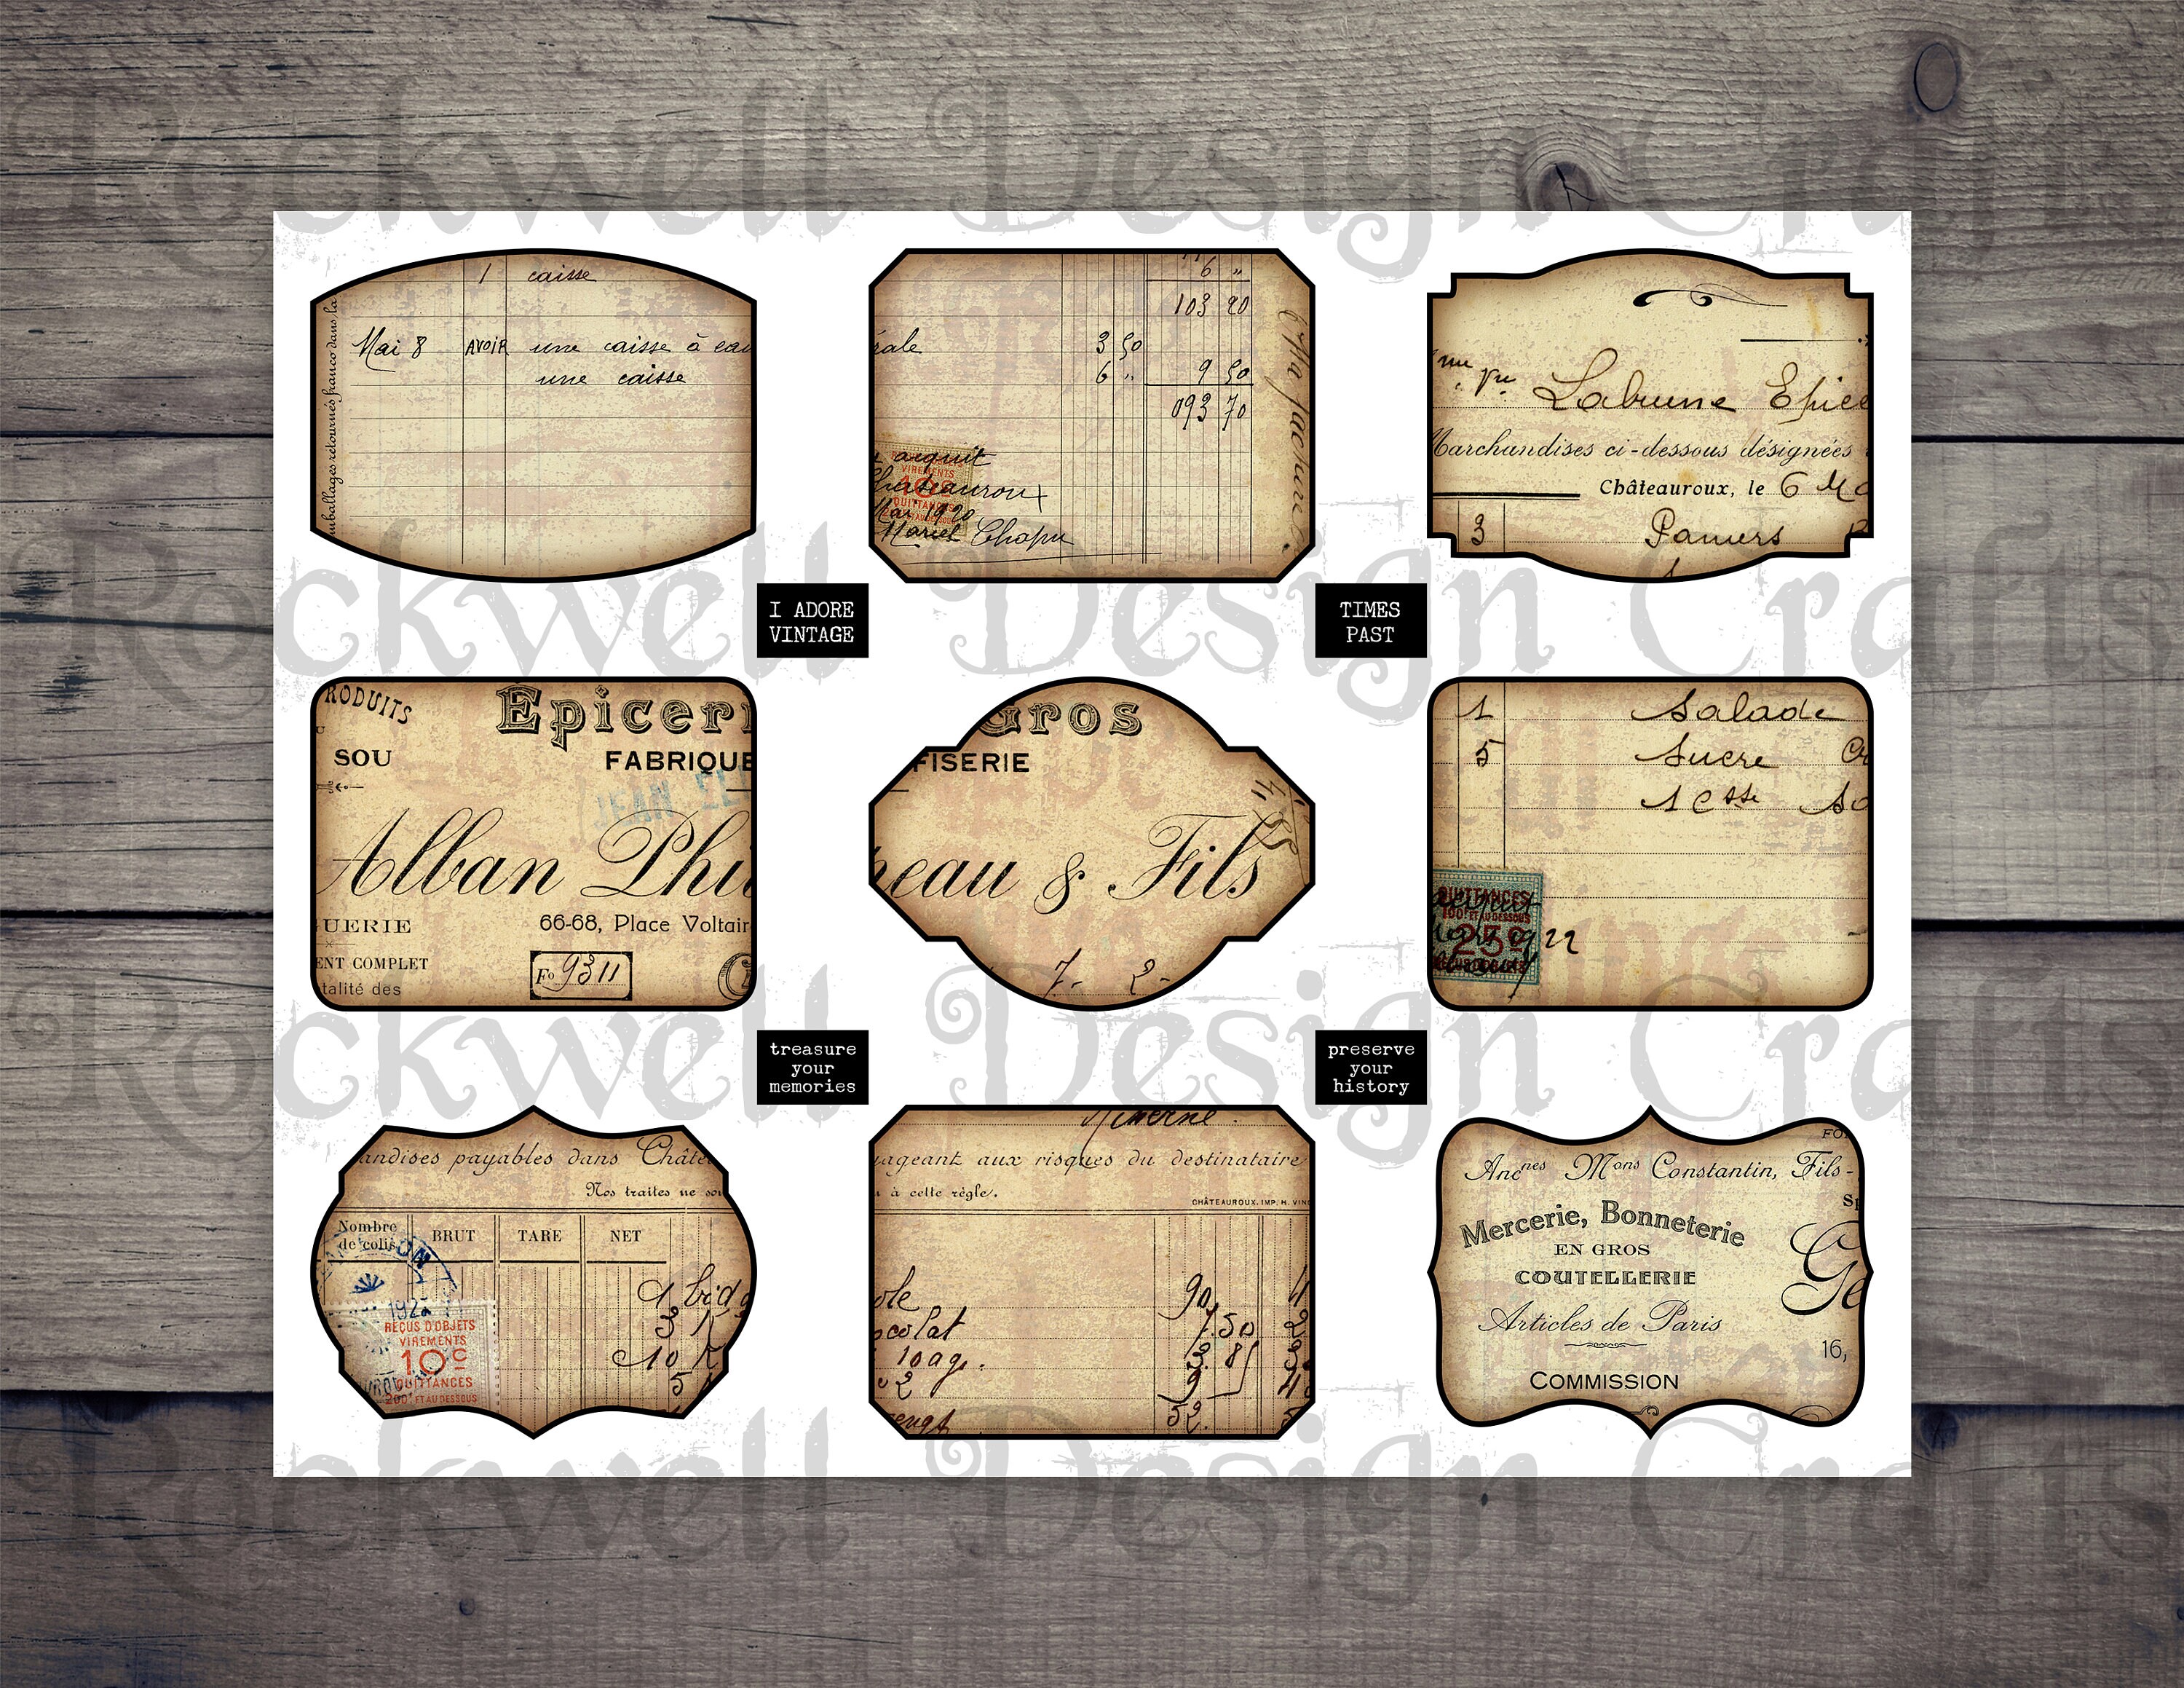 Rockwell Design Crafts
1 caisse
Mai 8 AVOIR une caisse à eau
une caisse
emballages retournés franco dans la
6 "
103 90
rale 3 50
6 " 9 50
093 70
acquit
Chateauroux
Mai 1920
Marcel Chapu
VIREMENTS
10c
QUITTANCES
Labrune Epice
Marchandises ci-dessous désignées
Châteauroux, le 6 Ma
3 Paniers
I ADORE
VINTAGE
TIMES
PAST
Rockwell Design Crafts
RODUITS
Epiceri
SOU
FABRIQUE
JEAN
Alban Phi
UERIE
66-68, Place Voltair
ENT COMPLET
talité des
Fo 9311
Gros
FISERIE
eau & Fils
7- 2-
1 Salade
5 Sucre
QUITTANCES
25c
1922
treasure
your
memories
preserve
your
history
Rockwell Design Crafts
andises payables dans Châte
Nos traites ne so
Nombre
de colis
BRUT
TARE
NET
1 bid
3
10
5
192
REÇUS D'OBJETS
VIREMENTS
10c
QUITTANCES
200F ET AU DESSOUS
ageant aux risques du destinataire
à cette règle.
CHÂTEAUROUX. IMP. H. VIN
ole 90
colat 7.50
10 ag.
2
52.
Ancnes Mons Constantin, Fils-
Mercerie, Bonneterie
EN GROS
COUTELLERIE
Articles de Paris
COMMISSION
Ge
16,
Rockwell Design Crafts